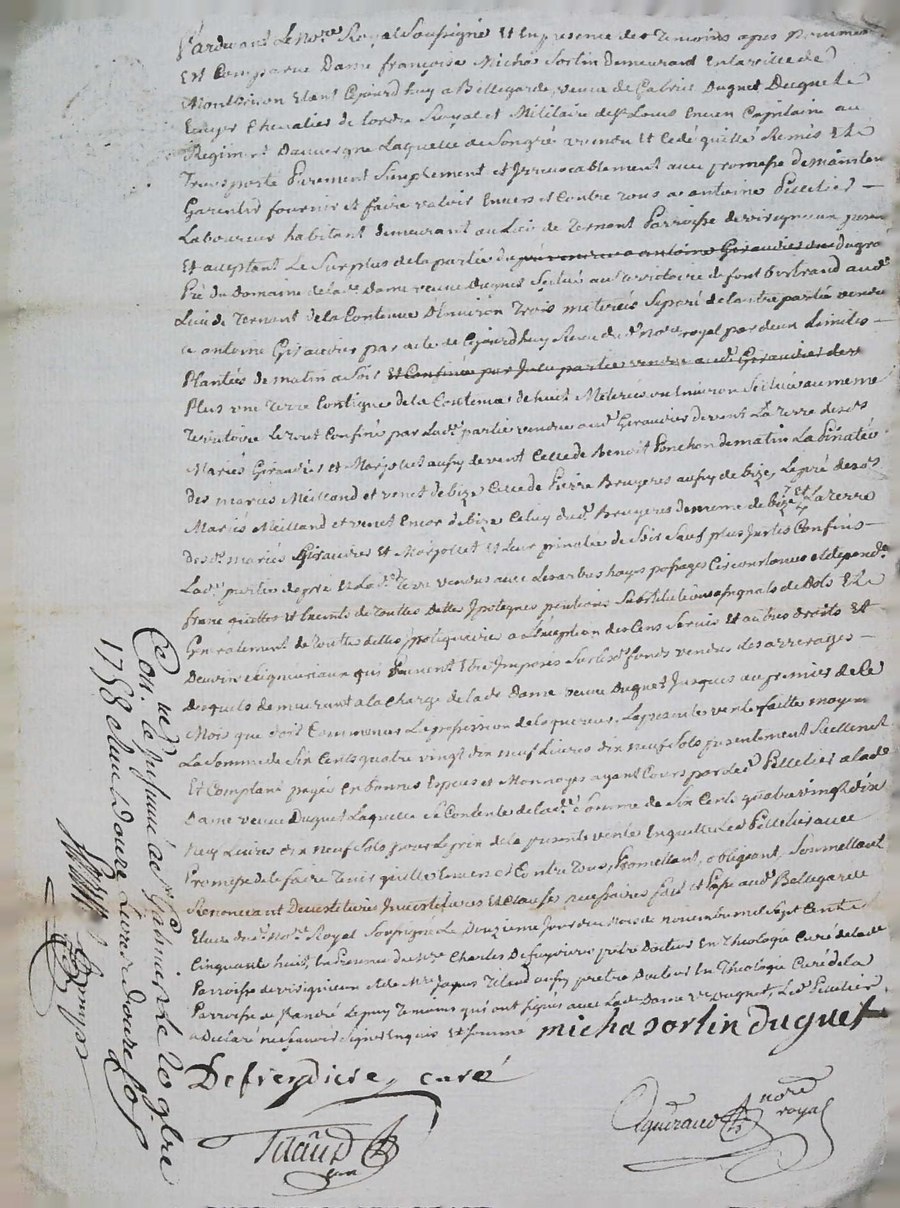 Pardevant Le No.re Royal Soussigné Et En presence des Temoins apres Nommés
Est Comparue Dame françoise Micha Sorlin Demeurant En la ville de
Montbrison Etant Cejourd'huy a Bellegarde, veuve de Gabriel Duguet Ducguet
Ecuyer Chevalier de L'ordre Royal et Militaire de St Louis Encien Capitaine au
Regiment Dauvergne Laquelle de Son gré a vendu Et Cedé quitté Remis Et
Transporté Purement Simplement et Irrevocablement avec promesse de maintenir
Garentir fournir et faire valoir Envers et Contre tous a antoine Pelletier
Laboureur habitant demeurant au Lieu de Ternant Parroisse de virigneux present
Et acceptant Le Surplus de la partie du
Pré du Domaine de lade. Dame veuve Duguet Scitué au territoire de font bertrand aud.
Lieu de Ternant de la Contenue D'Environ Trois meterées Separé de lautre partie vendue
a antoine Giraudier par acte de Cejourd'huy Receu du d. No.re royal par deux Limites
Plantées de matin a Soir Et Confiné par la partie vendue aud. Giraudier de
Plus une Terre Contigue de la Contenue de huit Meterées ou Environ Scituée au meme
Territoire Le tout Confiné par lad. partie vendue aud. Giraudier de vent La Terre desd.
Mariés Giraudier et Marjollet aussy de vent Celle de Benoit Ponchon de matin La Pinatée
des mariés Meilland et vent de bize Celle de Pierre Bruyeres aussy de bize, Le pré desd.
Mariés Meilland et vent Encor de bize Celuy dud. Bruyeres de meme de bize Et La terre
desd. mariés Giraudier Et Marjollet et Leur pinatée de Soir Sauf plus Justes Confins
Lad. partie de pré Et Lad. Terre vendus avec Les arbres hayes passages Circonstances et dépend.
franc quittes et Exempts de Touttes Dettes Ipoteques pensions Substitutions
Generalement de toutte dette Ipotequaire a L'exeption des Cens Servis et autres droits Et
Devoirs Seigneuriaux qui peuvent Etre Imposés Sur Lesd. fonds vendus des arrerages
desquels demeurant a la Charge de lade Dame veuve Duguet Jusques au premier de Ce
Mois que doit Commencer La possession de Lacquereur. La presente vente faitte moyen
La Somme de Six Cents quatre vingt dix neuf Livres dix neuf Sols presentement Reellement
Et Comptant payée En bonnes Especes et Monnoyes ayant Cours par led. Pelletier a lad.
Dame veuve Duguet Laquelle Se Contente de lad. Somme de Six Cents quatre vingt dix
neuf Livres dix neuf Sols pour Le prix de la presente vente En quitte Led. Pelletier avec
Promesse de le faire Tenir quitte Envers et Contre Tous, Promettant, obligeant, Soumettant
Renonçant Devestitures Investitures Et Clauses necessaires fait et Passé aud. Bellegarde
Etude du d. No.re Royal Soussigné Le Douzieme Jour du Mois de novembre mil Sept Cents
Cinquante huit, En presence de M.re Charles Defreydiere prêtre Docteur En Theologie Curé de la
Parroisse de virigneux et de M.re Jaques Tilaud aussy prêtre Docteur En Theologie Curé de la
Parroisse de St André Le puy Temoins qui ont signés avec Lad. Dame ve. Duguet, Led. Pelletier
a Declaré ne Scavoir Signer Enquis Et Sommé micha sorlin duguet
Defreydiere, curé
Tilaud
curé
guiraud no.re
royal
Con.
1758
Livres douze